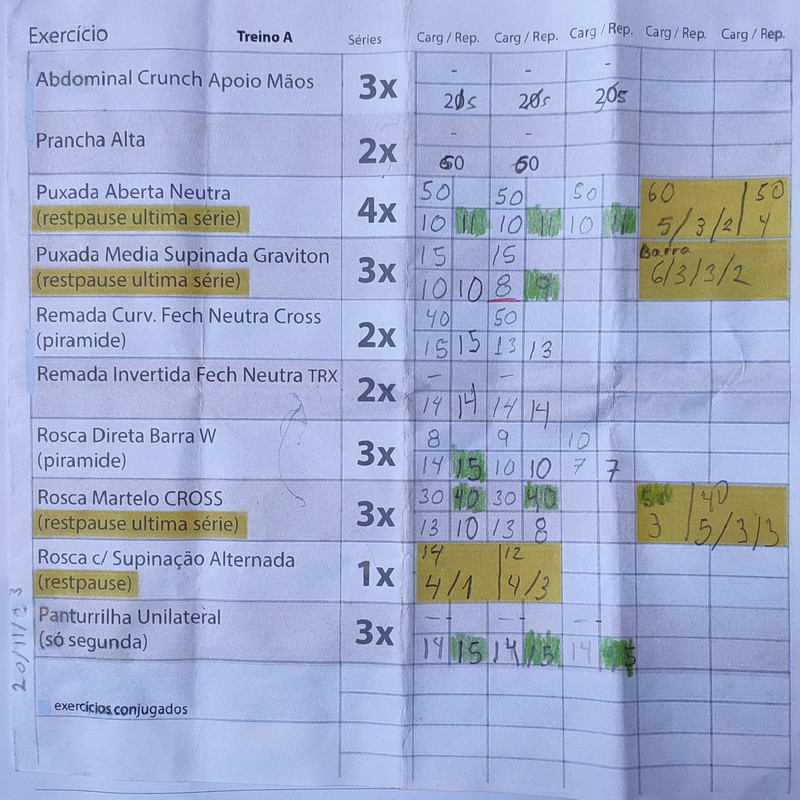 Exercício Treino A Séries Carg / Rep. Carg / Rep. Carg / Rep. Carg / Rep. Carg / Rep.
Abdominal Crunch Apoio Mãos 3x - - -
20s 20s 20s
Prancha Alta 2x - -
60 60
Puxada Aberta Neutra 4x 50 50 50 60 | 50
(restpause ultima série) 10 11 10 11 10 11 5/3/2 | 4
Puxada Media Supinada Graviton 3x 15 15 Barra
(restpause ultima série) 10 10 8 9 6/3/3/2
Remada Curv. Fech Neutra Cross 2x 40 50
(piramide) 15 15 13 13
Remada Invertida Fech Neutra TRX 2x - -
14 14 14 14
Rosca Direta Barra W 3x 8 9 10
(piramide) 14 15 10 10 7 7
Rosca Martelo CROSS 3x 30 40 30 40 50 | 40
(restpause ultima série) 13 10 13 8 3 | 5/3/3
Rosca c/ Supinação Alternada 1x 14 | 12
(restpause) 4/1 | 4/3
Panturrilha Unilateral 3x - - - - - -
(só segunda) 14 15 14 15 14 15
20/11/23
exercícios conjugados